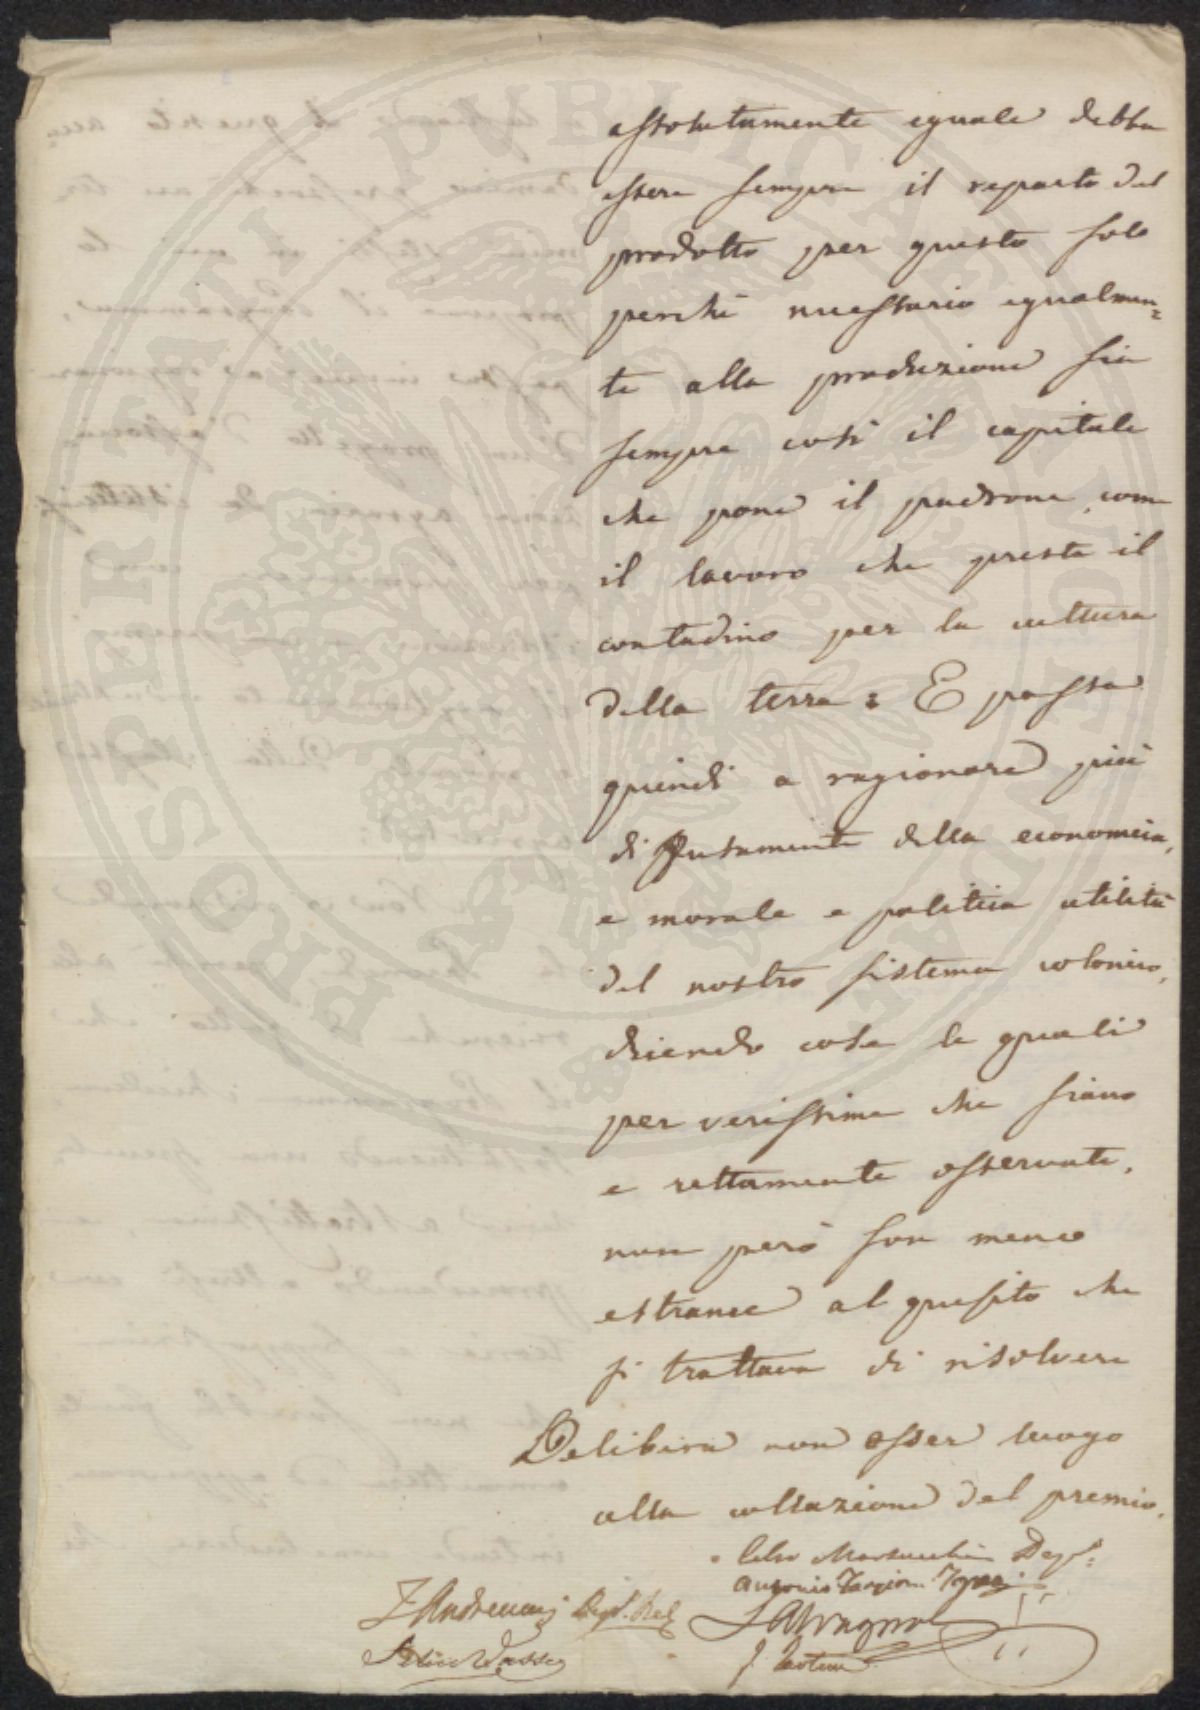 assolutamente eguale debba
essere sempre il reparto del
prodotto per questo solo
perchè necessario egualmen=
te alla produzione sia
sempre così il capitale
che pone il padrone, come
il lavoro che presta il
contadino per la cultura
della terra = E passa
quindi a ragionare più
diffusamente della economica,
e morale e politica utilità
del nostro sistema colonico,
dicendo cose le quali
per verissime che siano
e rettamente osservate,
non però son meno
estranee al quesito che
si trattava di risolvere
Delibera non esser luogo
alla collazione del premio.
Celso Marzucchi Dep:
Antonio Targioni Tozzetti
L Andreucci Dep. Rel
PROSPERITATI PUBLICAE AUGENDAE